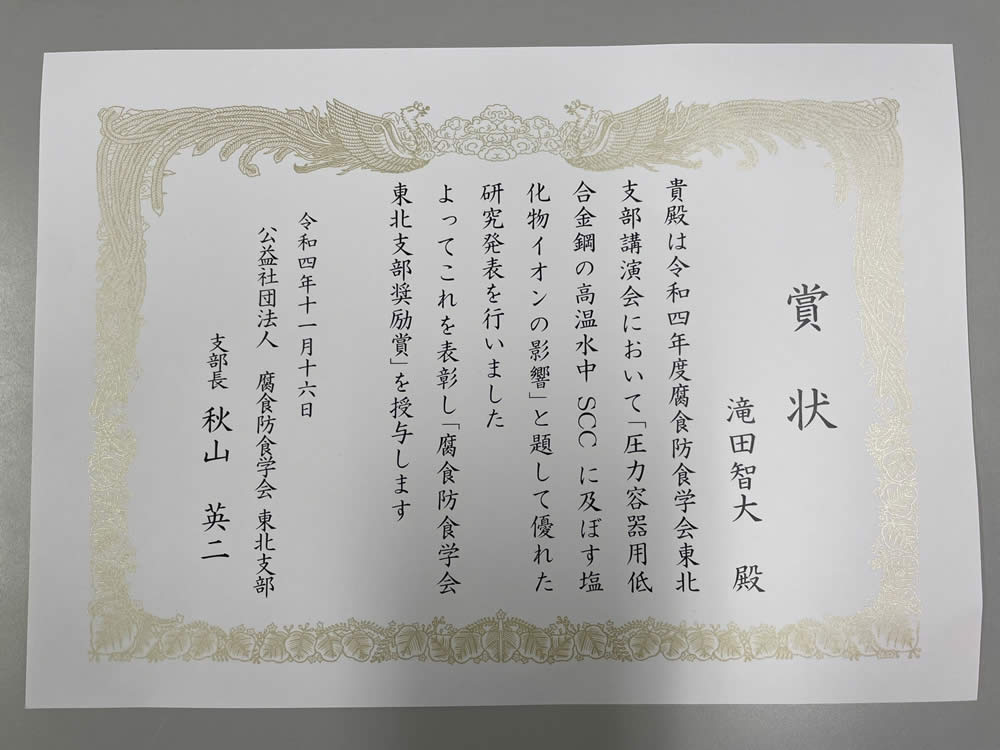 賞状
滝田智大 殿
貴殿は令和四年度腐食防食学会東北
支部講演会において「圧力容器用低
合金鋼の高温水中 SCC に及ぼす塩
化物イオンの影響」と題して優れた
研究発表を行いました
よってこれを表彰し「腐食防食学会
東北支部奨励賞」を授与します
令和四年十一月十六日
公益社団法人 腐食防食学会 東北支部
支部長 秋山 英二